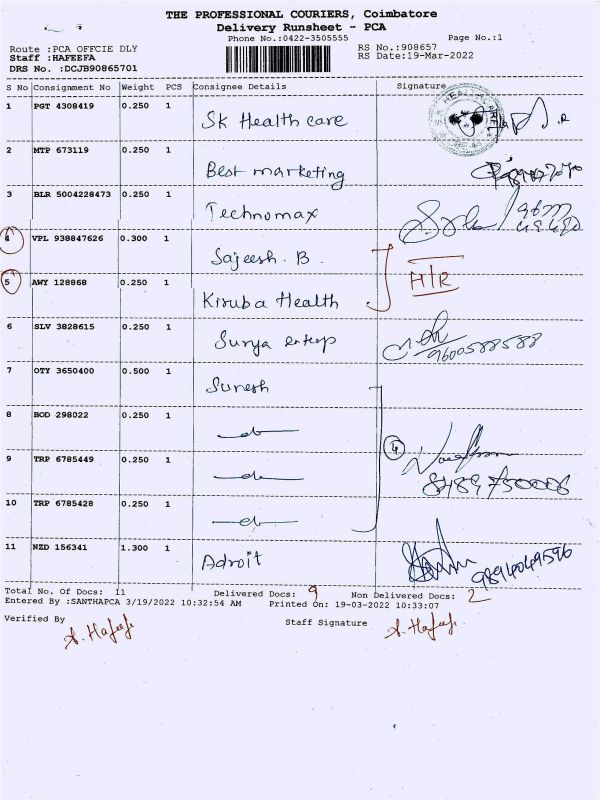 THE PROFESSIONAL COURIERS, Coimbatore
Delivery Runsheet - PCA
Phone No.:0422-3505555 Page No.:1
Route :PCA OFFCIE DLY RS No.:908657
Staff :HAFEEFA RS Date:19-Mar-2022
DRS No. :DCJB90865701
S No Consignment No Weight PCS Consignee Details Signature
1 PGT 4308419 0.250 1 Sk Health care
2 MTP 673119 0.250 1 Best marketing
3 BLR 5004228473 0.250 1 Technomax
4 VPL 938847626 0.300 1 Sajeesh. B.
H/R
5 AWY 128868 0.250 1 Kiruba Health
6 SLV 3828615 0.250 1 Surya enterp 9600588588
7 OTY 3650400 0.500 1 Suresh
8 BOD 298022 0.250 1 do
4
9 TRP 6785449 0.250 1 do
8489750006
10 TRP 6785428 0.250 1 do
11 NZD 156341 1.300 1 Adroit 9894049596
Total No. Of Docs: 11 Delivered Docs: 9 Non Delivered Docs: 2
Entered By :SANTHAPCA 3/19/2022 10:32:54 AM Printed On: 19-03-2022 10:33:07
Verified By Staff Signature